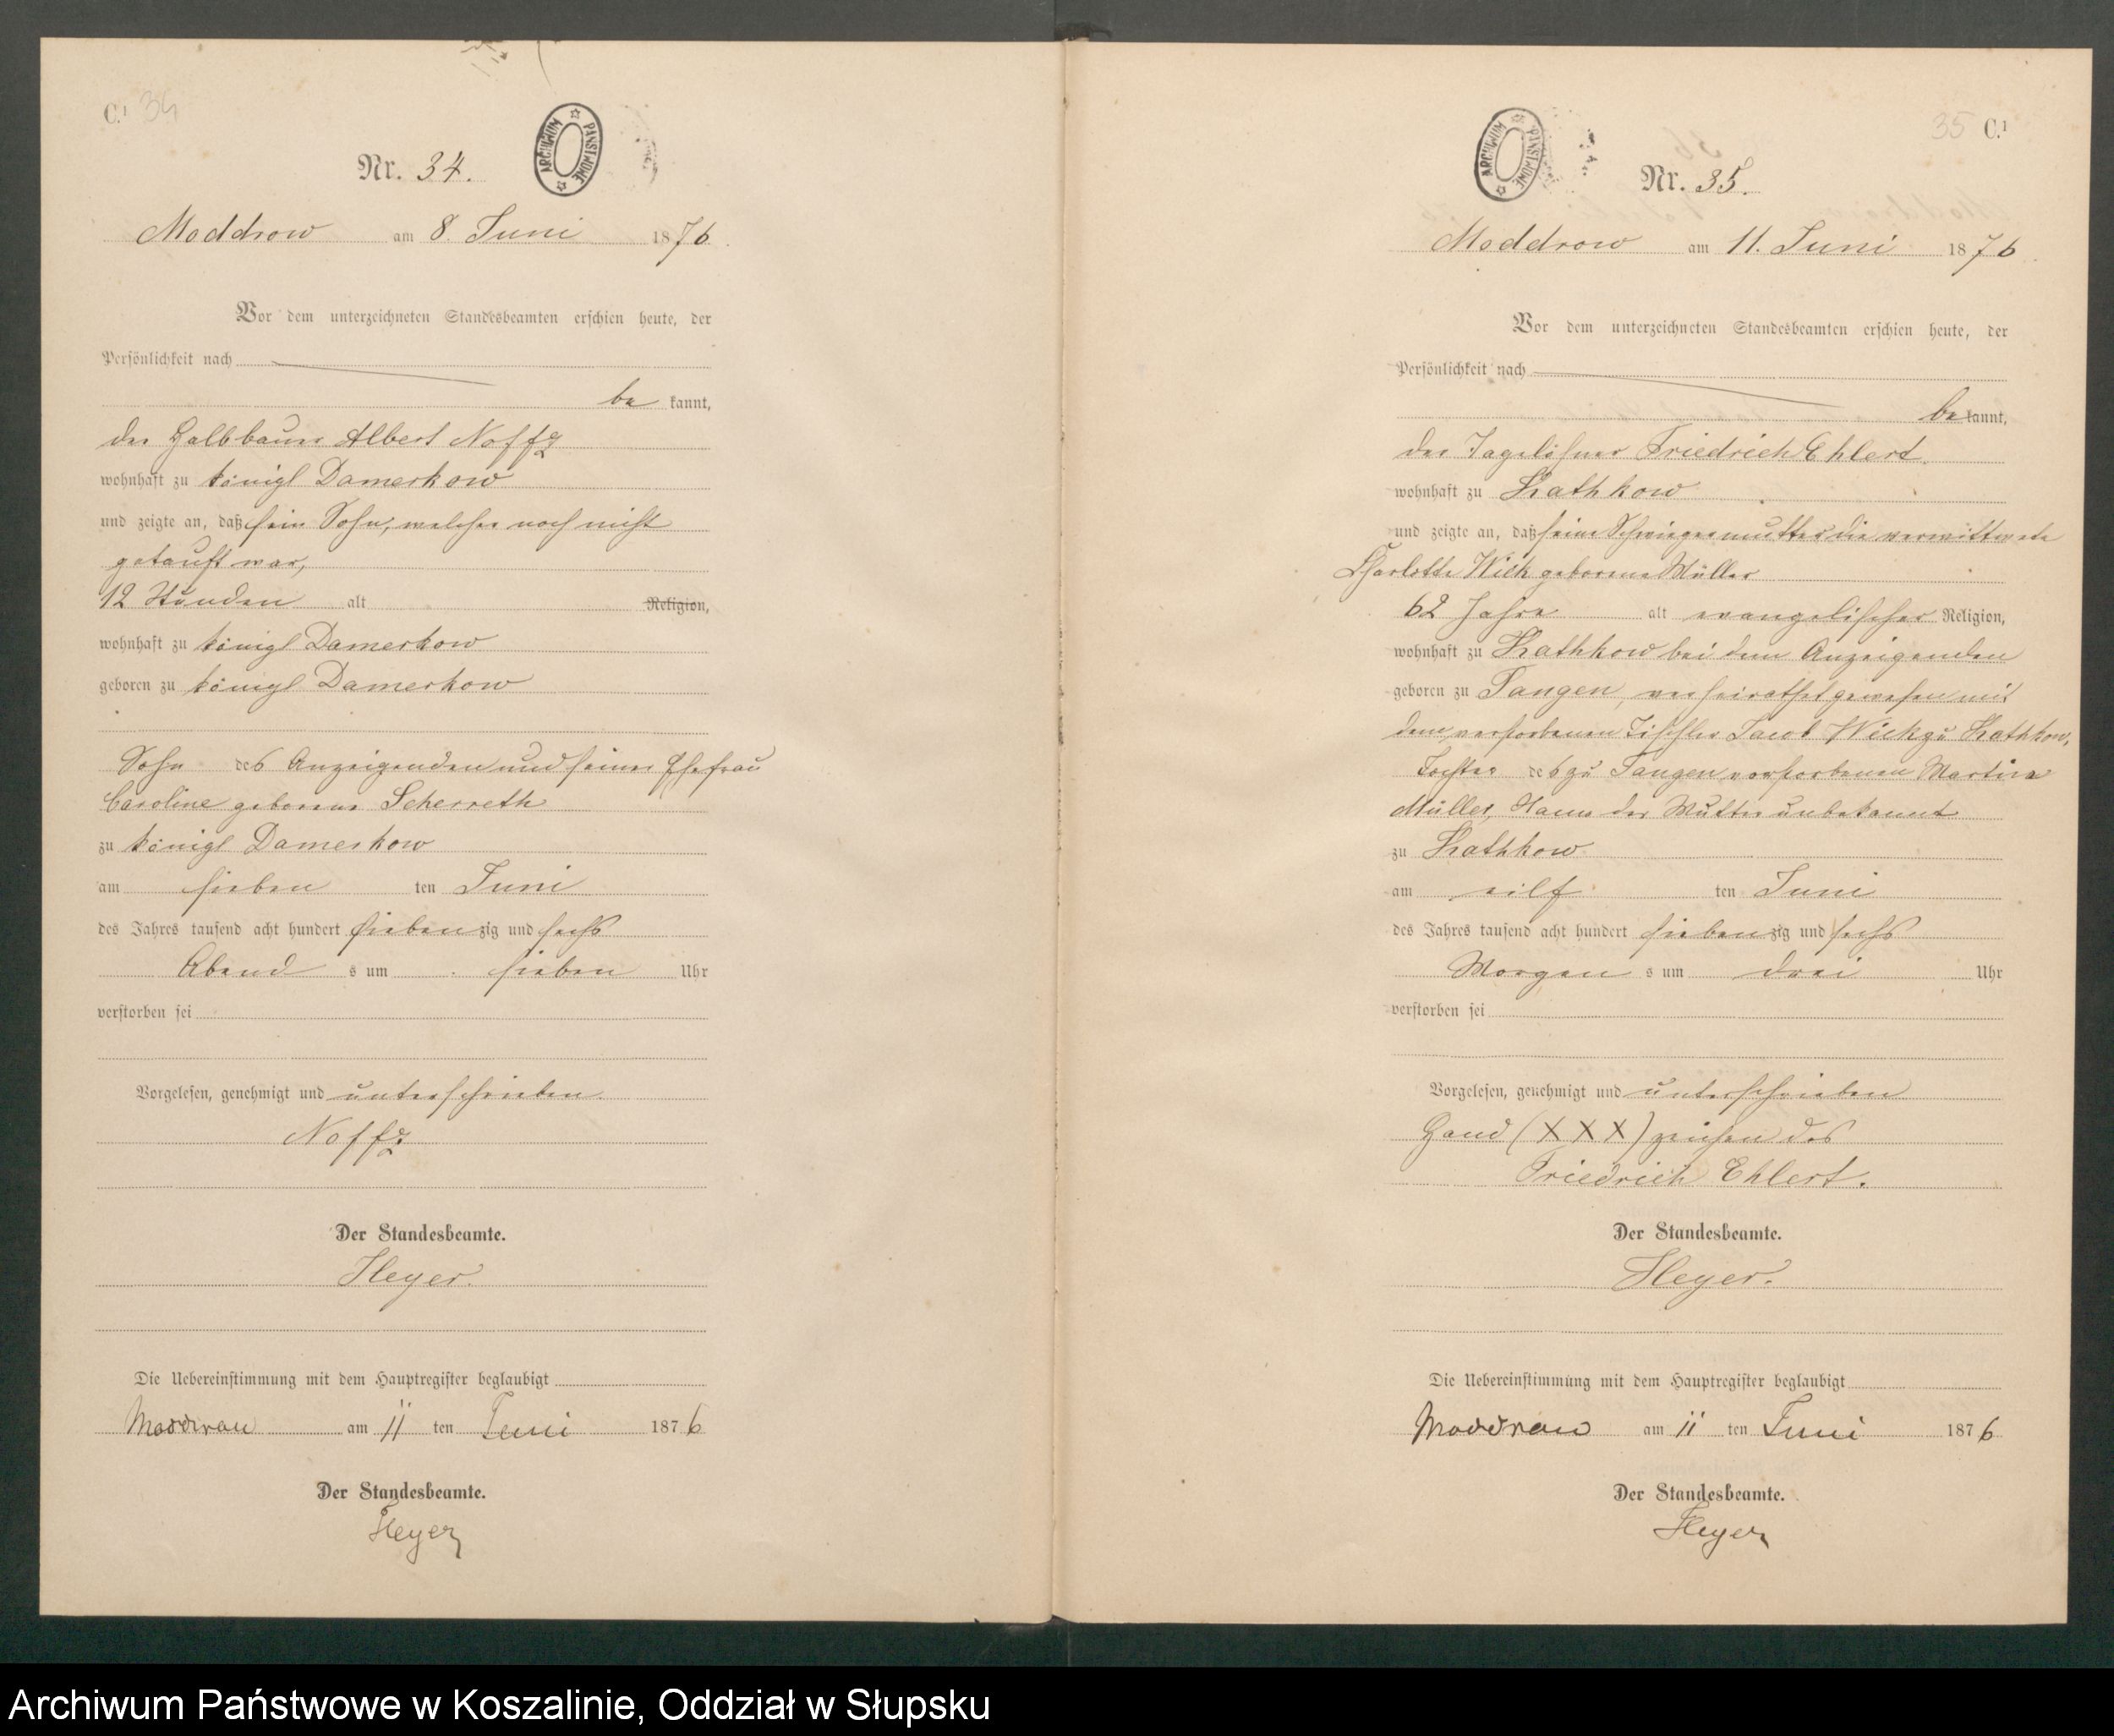 C.¹ 34
ARCHIWUM PAŃSTWOWE
Nr. 34.
Moddrow am 8. Juni 1876.
Vor dem unterzeichneten Standesbeamten erschien heute, der
Persönlichkeit nach
be kannt,
der Halbbauer Albert Noffz
wohnhaft zu königl Damerkow
und zeigte an, daß sein Sohn, welcher noch nicht
getauft war,
12 Stunden alt Religion,
wohnhaft zu königl Damerkow
geboren zu königl Damerkow
Sohn des Anzeigenden und seiner Ehefrau
Caroline geborene Scherreth
zu königl Damerkow
am sieben ten Juni
des Jahres tausend acht hundert siebenzig und sechs
Abend s um sieben Uhr
verstorben sei
Vorgelesen, genehmigt und unterschrieben.
Noffz
Der Standesbeamte.
Heyer.
Die Uebereinstimmung mit dem Hauptregister beglaubigt
Moddrow am 11 ten Juni 1876
Der Standesbeamte.
Heyer
35 C.¹
ARCHIWUM PAŃSTWOWE
Nr. 35.
Moddrow am 11. Juni 1876.
Vor dem unterzeichneten Standesbeamten erschien heute, der
Persönlichkeit nach
be kannt,
der Tagelöhner Friedrich Ehlert
wohnhaft zu Kathkow
und zeigte an, daß seine Schwiegermutter die verwittwete
Charlotte Wick geborene Müller
62 Jahre alt evangelischer Religion,
wohnhaft zu Kathkow bei dem Anzeigenden
geboren zu Tangen, verheirathet gewesen mit
dem verstorbenen Tischler Jacob Wick zu Kathkow,
Tochter des zu Tangen verstorbenen Martin
Müller, Name der Mutter unbekannt
zu Kathkow
am eilf ten Juni
des Jahres tausend acht hundert siebenzig und sechs
Morgen s um drei Uhr
verstorben sei
Vorgelesen, genehmigt und unterschrieben
Hand (XXX) zeichen des
Friedrich Ehlert.
Der Standesbeamte.
Heyer.
Die Uebereinstimmung mit dem Hauptregister beglaubigt
Moddrow am 11 ten Juni 1876
Der Standesbeamte.
Heyer
Archiwum Państwowe w Koszalinie, Oddział w Słupsku